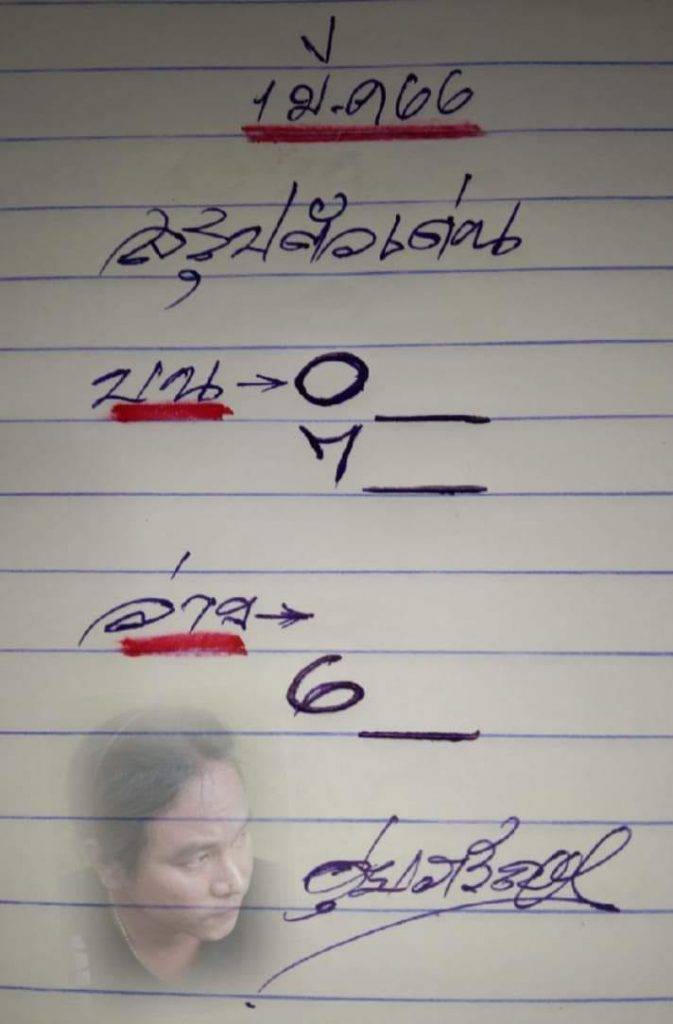 1 มี.ค 66
สรุปตัวเด่น
บน → 0 __
7 __
ล่าง →
6 __